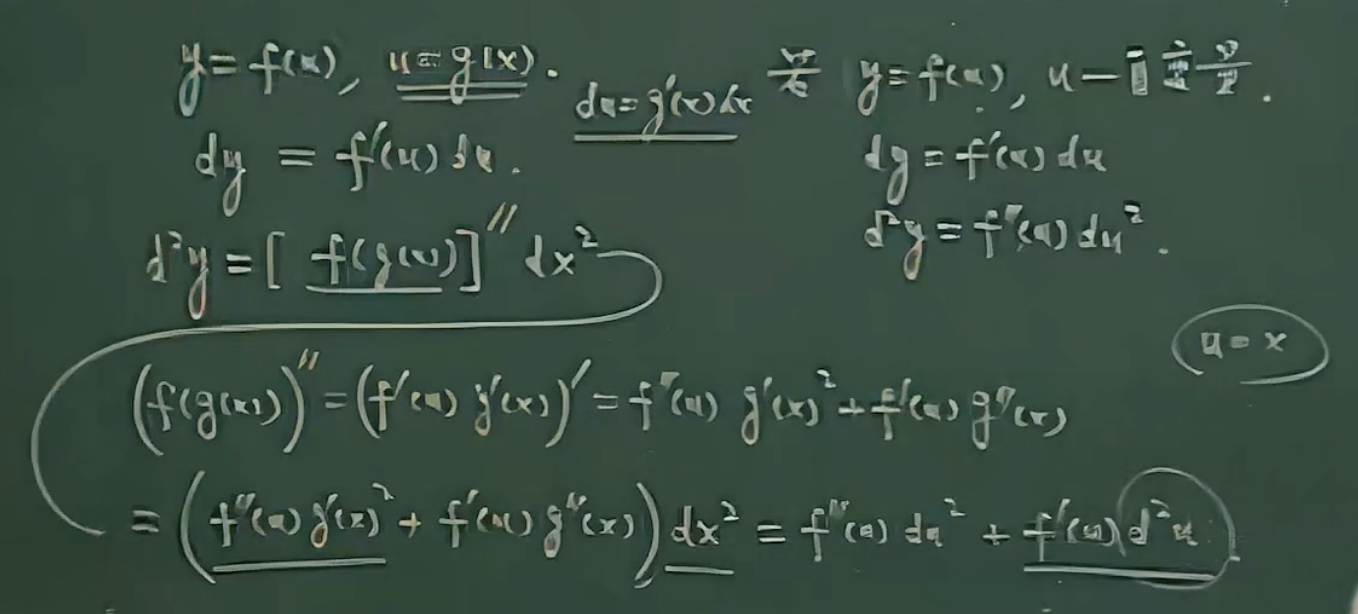 y = f(u), u = g(x). du = g'(x)dx y = f(u), u —
dy = f'(u) du. dy = f'(u) du
d²y = [ f(g(x)) ]'' dx² d²y = f''(u) du².
u = x
(f(g(x)))'' = (f'(u) g'(x))' = f''(u) g'(x)² + f'(u) g''(x)
= (f''(u) g'(x)² + f'(u) g''(x)) dx² = f''(u) du² + f'(u) d²u